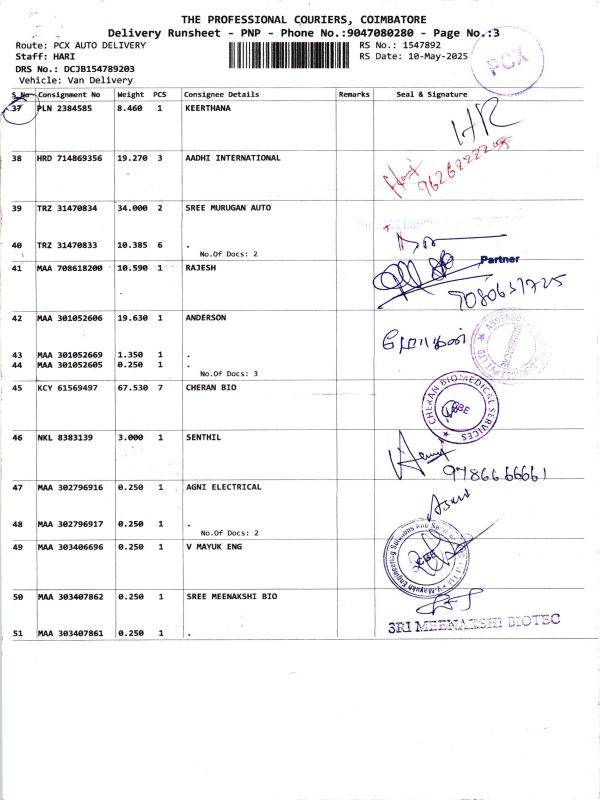 THE PROFESSIONAL COURIERS, COIMBATORE
Delivery Runsheet - PNP - Phone No.:9047080280 - Page No.:3
Route: PCX AUTO DELIVERY
RS No.: 1547892
Staff: HARI
RS Date: 10-May-2025
DRS No.: DCJB154789203
Vehicle: Van Delivery
PCX
S No Consignment No Weight PCS Consignee Details Remarks Seal & Signature
37 PLN 2384585 8.460 1 KEERTHANA
38 HRD 714869356 19.270 3 AADHI INTERNATIONAL
39 TRZ 31470834 34.000 2 SREE MURUGAN AUTO
40 TRZ 31470833 10.385 6 .
No.Of Docs: 2
Partner
41 MAA 708618200 10.590 1 RAJESH
42 MAA 301052606 19.630 1 ANDERSON
43 MAA 301052669 1.350 1 .
44 MAA 301052605 0.250 1 .
No.Of Docs: 3
45 KCY 61569497 67.530 7 CHERAN BIO
CHERAN BIOMEDICAL SERVICES
CBE
46 NKL 8383139 3.000 1 SENTHIL
9786666661
47 MAA 302796916 0.250 1 AGNI ELECTRICAL
48 MAA 302796917 0.250 1 .
No.Of Docs: 2
49 MAA 303406696 0.250 1 V MAYUK ENG
CBE
50 MAA 303407862 0.250 1 SREE MEENAKSHI BIO
SRI MEENAKSHI BIOTEC
51 MAA 303407861 0.250 1 .